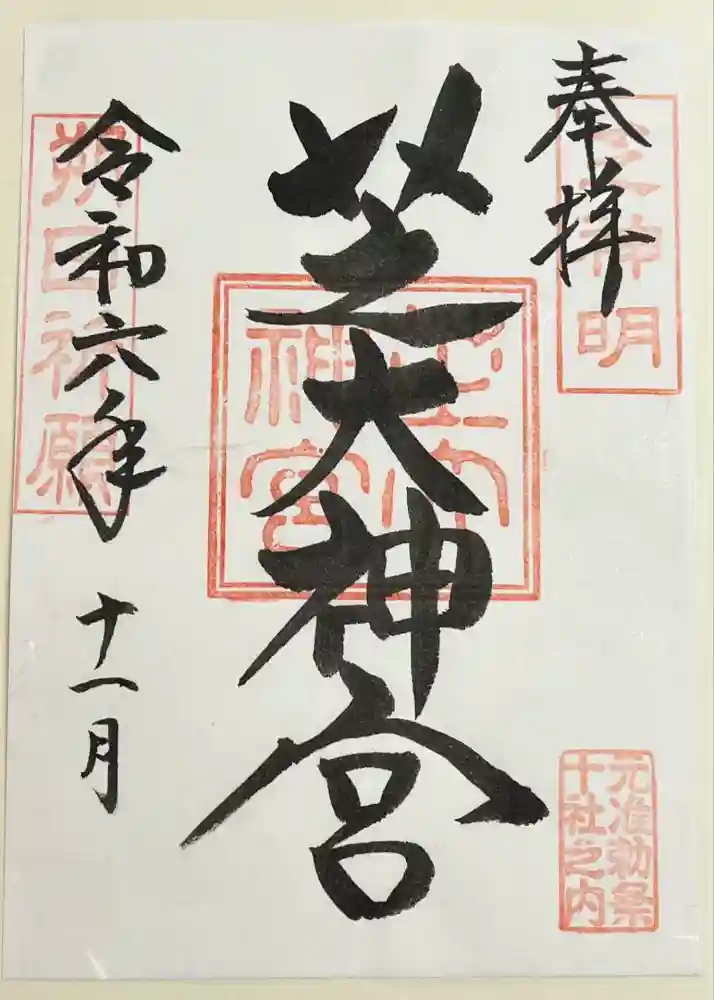 奉拝
芝神明
元准勅祭
十社之内
芝大神宮
芝大
神宮
令和六年十一月
朔日祈願